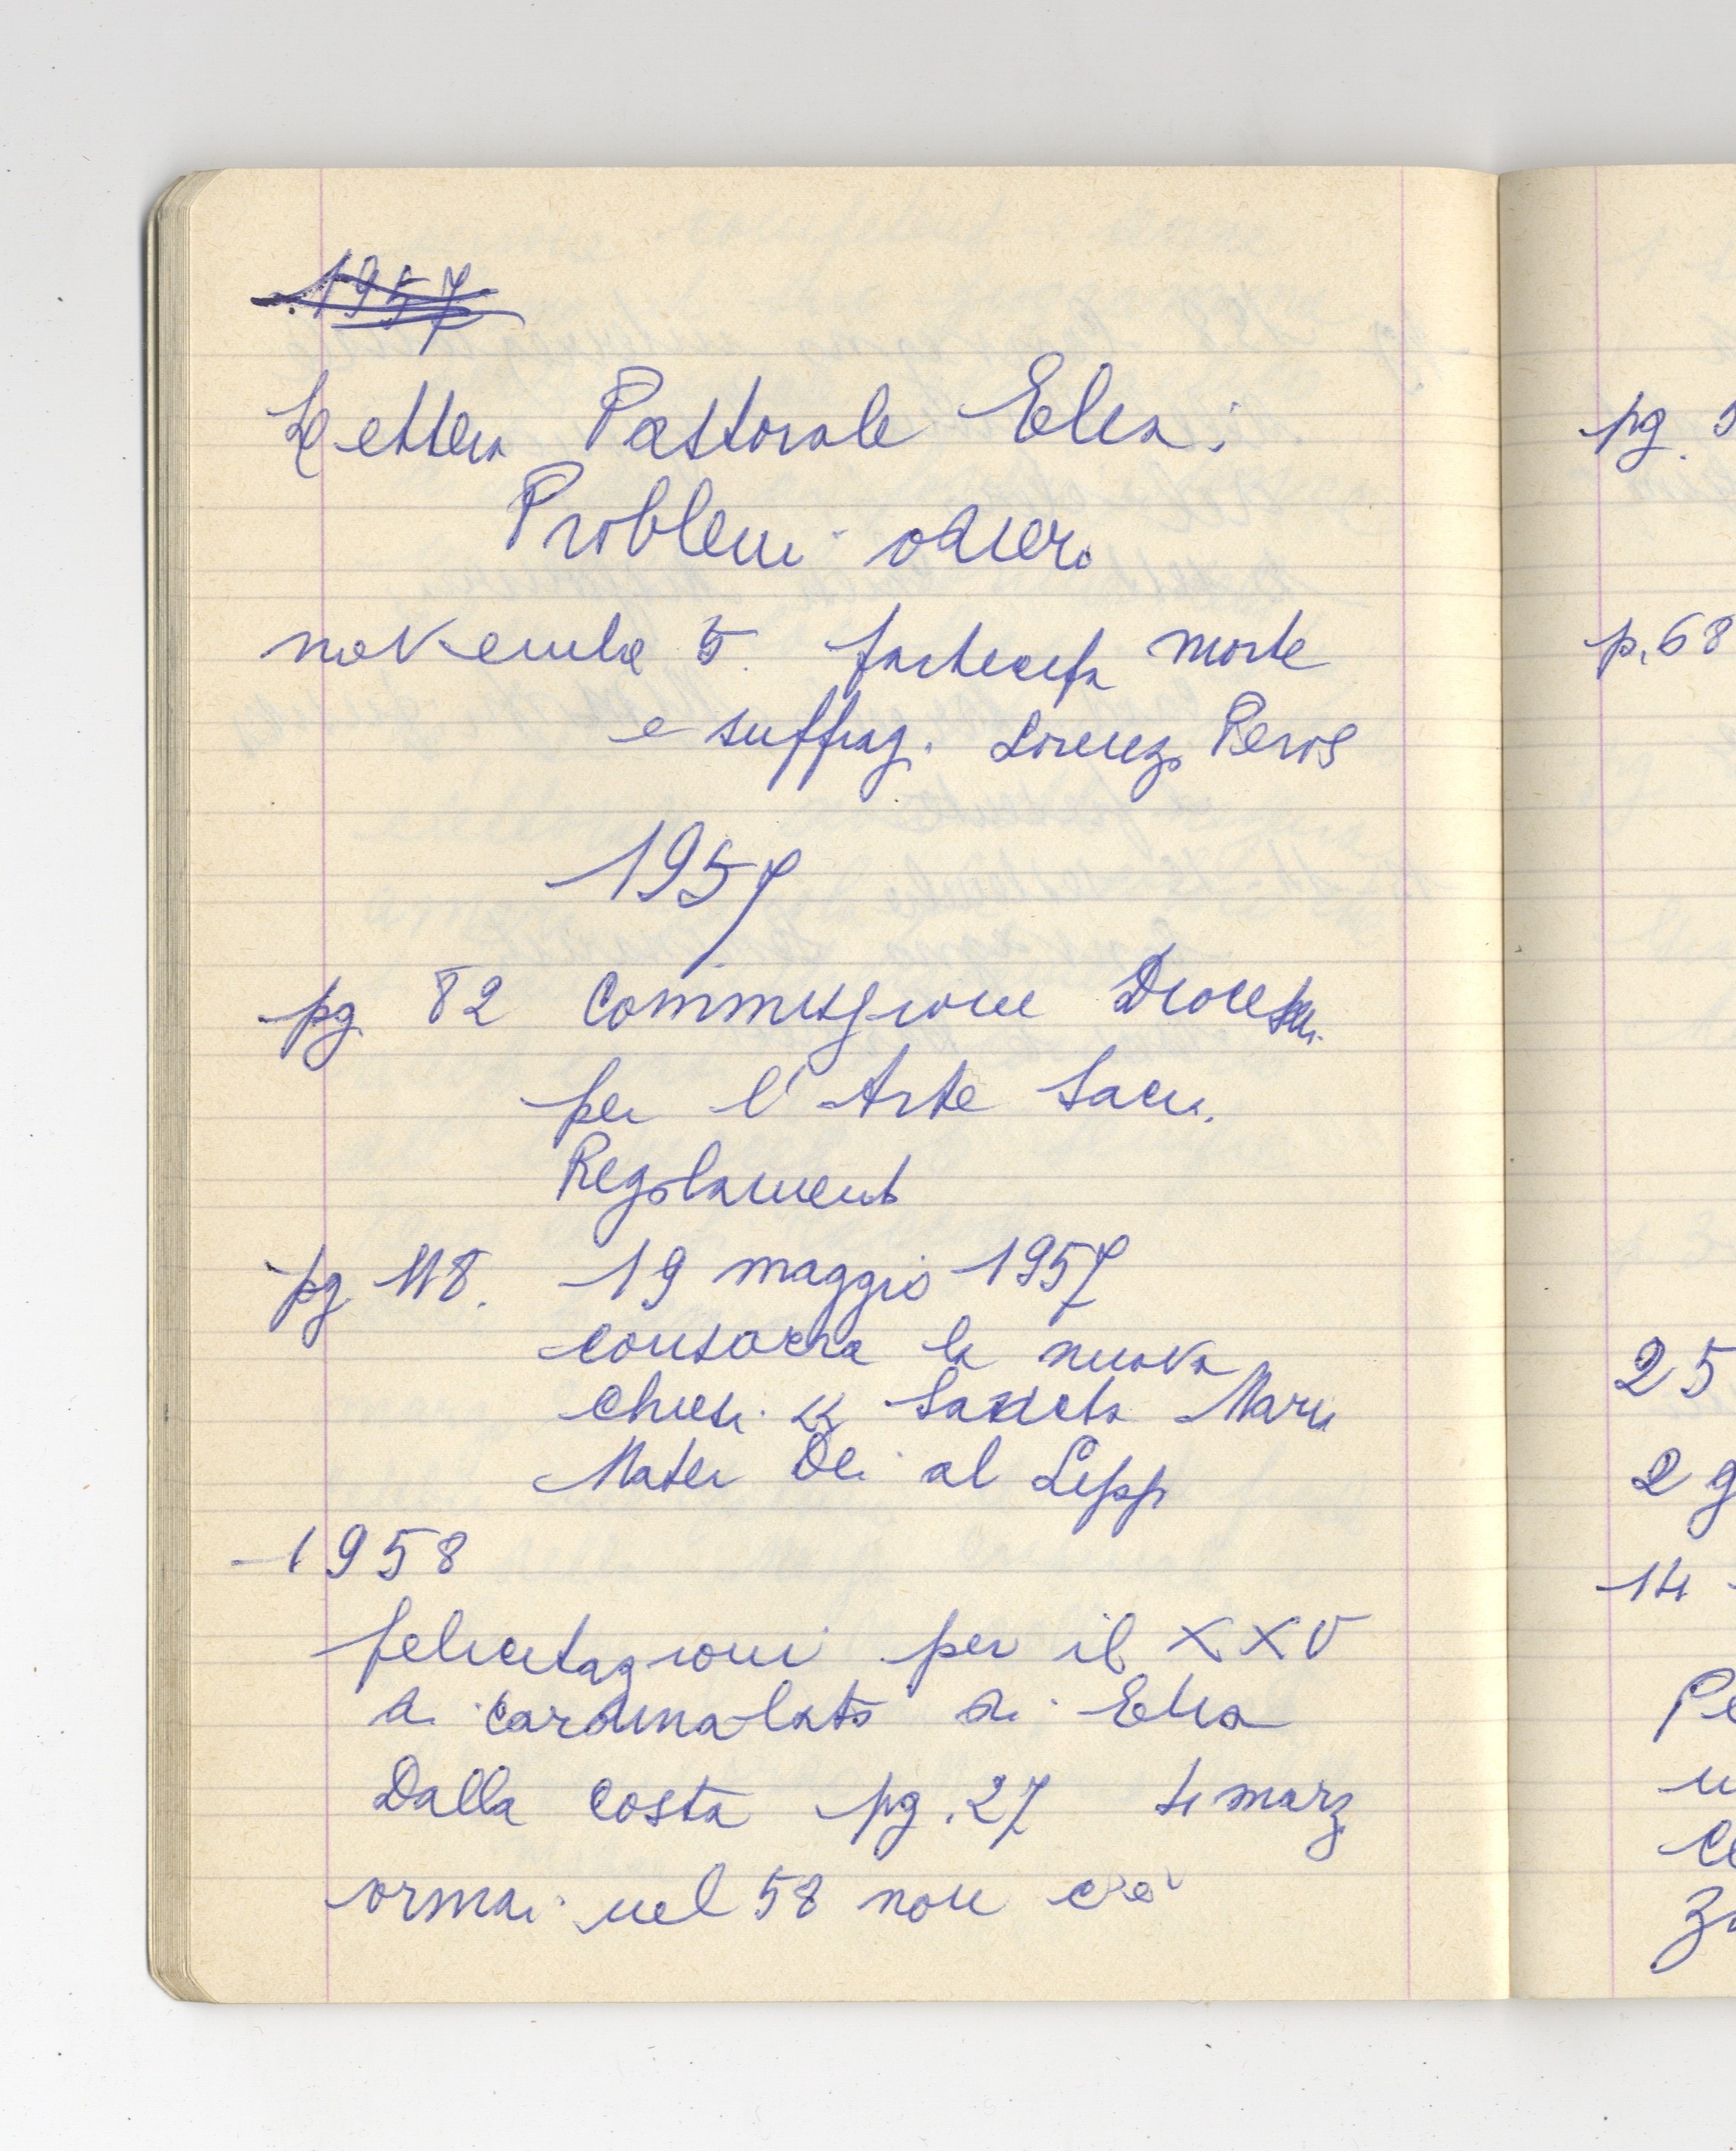 1957
Lettera Pastorale Elia:
Problemi odierni
novembre 5. partecipa morte
e suffrag. Lorenzo Perosi
1957
pg. 82 Commissione Diocesan.
per l'Arte Sacra.
Regolamento
pg. 118. 19 maggio 1957
consacra la nuova
chiesa << Sancta Maria
Mater Dei al Lippi
1958
felicitazioni per il XXV
di cardinalato di Elia
Dalla Costa pg. 27 4 marzo
ormai nel 58 non
pg.
p. 68
25
2 g
14